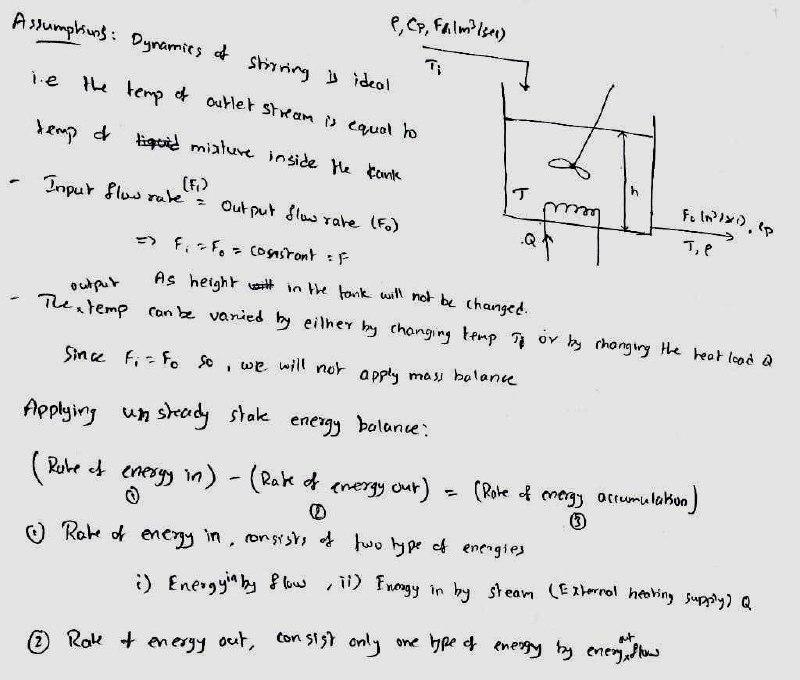 Assumptions: Dynamics of stirring is ideal
i.e the temp of outlet stream is equal to
temp of liquid mixture inside the tank
- Input flow rate (Fi) = Output flow rate (Fo)
=> Fi = Fo = constant = F
As height in the tank will not be changed.
- The output temp can be varied by either by changing temp Ti or by changing the heat load Q
Since Fi = Fo so, we will not apply mass balance
Applying unsteady state energy balance:
(Rate of energy in) - (Rate of energy out) = (Rate of energy accumulation)
① ② ③
① Rate of energy in, consists of two type of energies
i) Energy in by flow, ii) Energy in by steam (External heating supply) Q
② Rate of energy out, consist only one type of energy by energy out flow
ρ, Cp, Fi (m³/sec)
Ti
T
h
Q
Fo (m³/sec), Cp
T, ρ